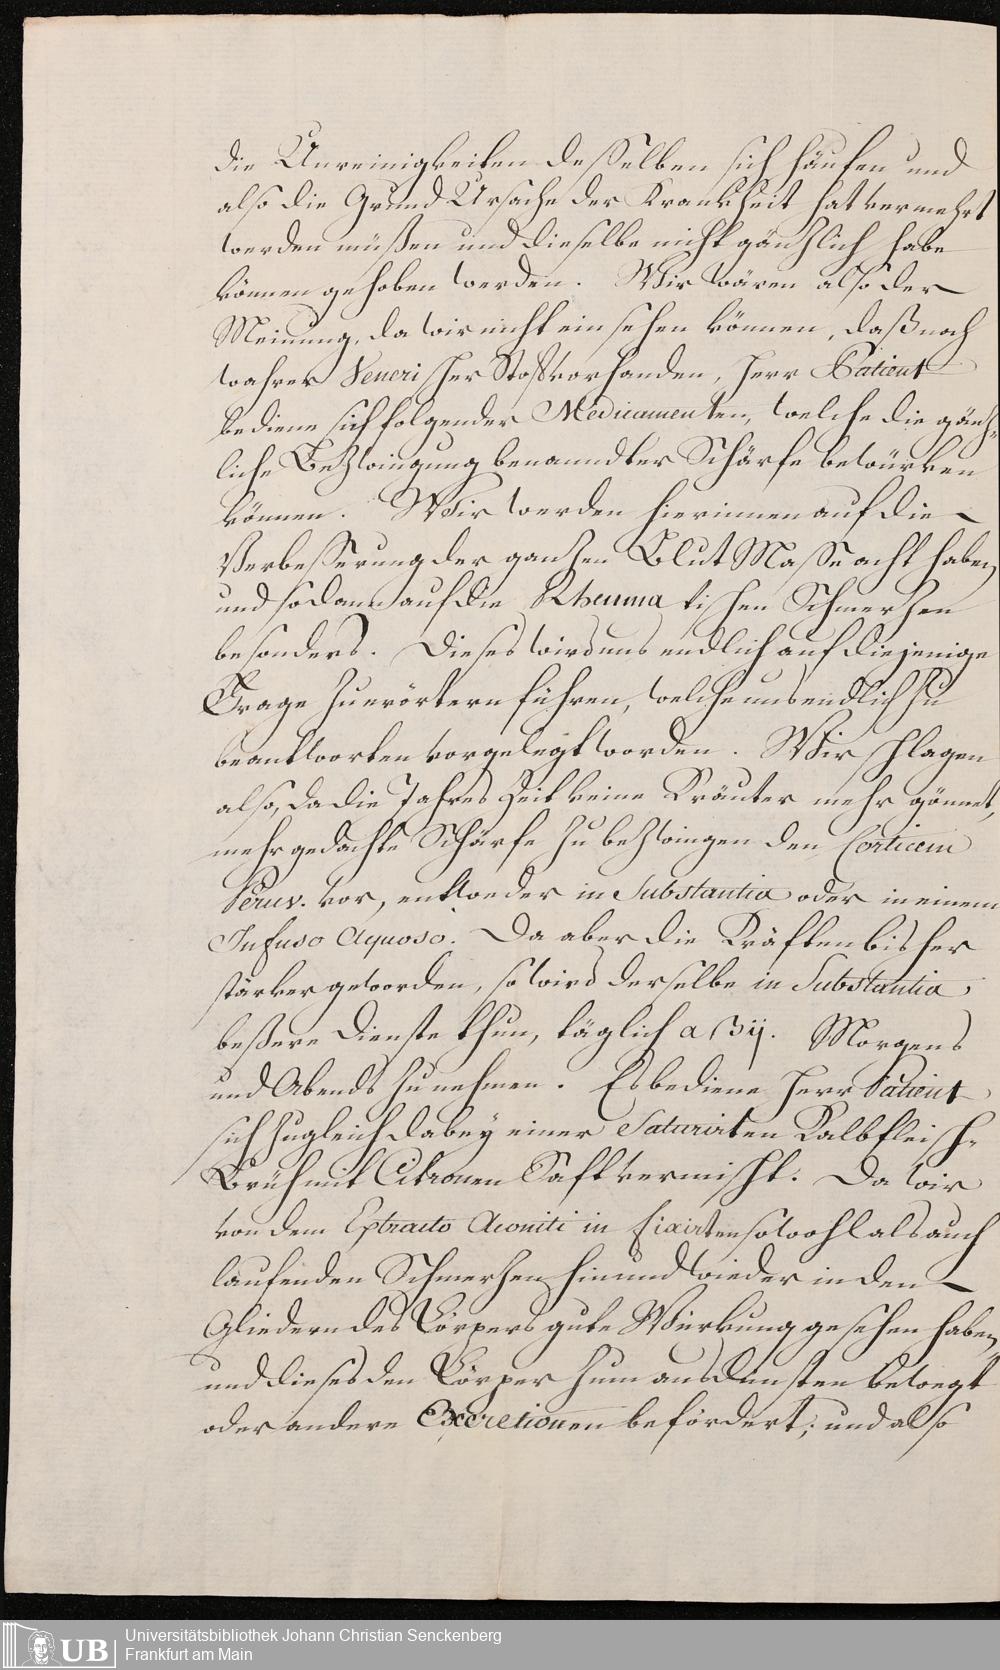 die Unreinigkeiten desselben sich häufen und
also die Grund Ursache der Krankheit hat vermehrt
werden müßen und dieselbe nicht gäntzlich habe
können gehoben werden. Wir wären also der
Meinung, da wir nicht ein sehen können, daß noch
wahrer Venerischer Stoff vorhanden, Herr Patient
bediene sich folgender Medicamenten, welche die gäntz-
liche Bezwingung benanndter Schärfe bewürken
können. Wir werden hierinnen auf die
Verbesserung der gantzen Blut Masse acht haben,
und sodann auf die Rheumatischen Schmertzen
besonders. Dieses wird uns endlich auf diejenige
Frage zu erörtern führen, welche uns endlich zu
beantworten vorgelegt worden. Wir schlagen
also, da die Jahres Zeit keine Kräuter mehr gönnet,
mehr gedachte Schärfe zu bezwingen den Corticem
Peruv. vor, entweder in Substantia oder in einem
Infuso Aquoso. Da aber die Kräfften bisher
stärker geworden, so wird derselbe in Substantia
beßere Dienste thun, täglich a ℈ij. Morgens
und Abends zu nehmen. Es bediene Herr Patient
sich zugleich dabey einer Saturirten Kalbfleisch-
Brüh mit Citronen Safft vermischt. Da wir
von dem Extracto Aconiti in fixirten sowohl als auch
laufenden Schmertzen hin und wieder in den
Gliedern des Cörpers gute Würkung gesehen haben,
und dieses den Cörper zum ausdünsten bewegt
oder andere Excretionen befördert; und also
Universitätsbibliothek Johann Christian Senckenberg
UB Frankfurt am Main